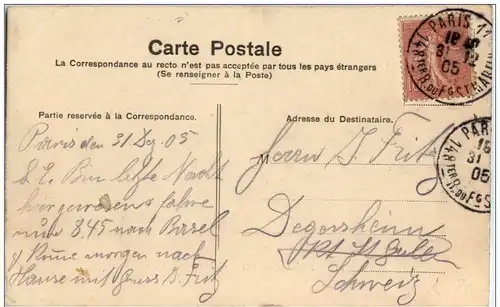 Carte Postale
La Correspondance au recto n'est pas acceptée par tous les pays étrangers
(Se renseigner à la Poste)
Partie reservée à la Correspondance.
Adresse du Destinataire.
Paris den 31 Dz 05
letzte Nacht
hier gewesen fahre
nun 8.45 nach Basel
morgen nach
Hause mit Gruss J. Fritz
M
Herrn J. Fritz
Degersheim
Kt. St. Gallen
Schweiz
PARIS 11
18
31 12
05
148TER R. DU FG ST
PARIS
18
31
05
148TER R. DU FG S